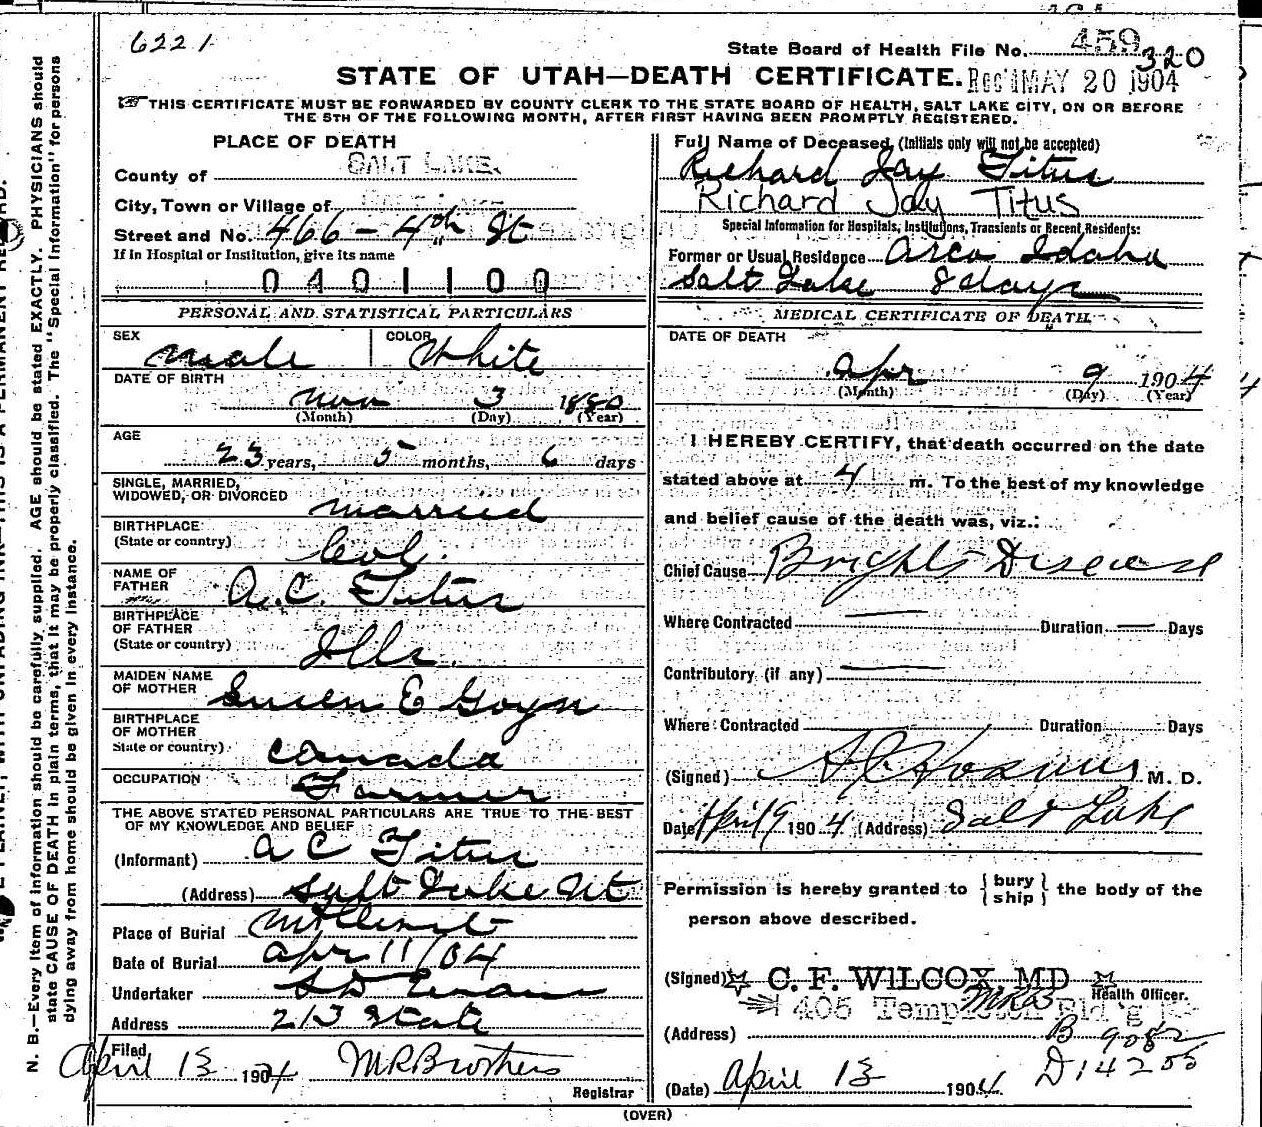 6221
State Board of Health File No. 459 320
STATE OF UTAH—DEATH CERTIFICATE. Rec'd MAY 20 1904
THIS CERTIFICATE MUST BE FORWARDED BY COUNTY CLERK TO THE STATE BOARD OF HEALTH, SALT LAKE CITY, ON OR BEFORE
THE 5TH OF THE FOLLOWING MONTH, AFTER FIRST HAVING BEEN PROMPTLY REGISTERED.
PLACE OF DEATH
County of SALT LAKE.
City, Town or Village of
Street and No. 466 - 4th St
If in Hospital or Institution, give its name
0401100
PERSONAL AND STATISTICAL PARTICULARS
SEX male COLOR White
DATE OF BIRTH
Nov 3 1880
(Month) (Day) (Year)
AGE
23 years, 5 months, 6 days
SINGLE, MARRIED,
WIDOWED, OR DIVORCED married
BIRTHPLACE
(State or country) Col.
NAME OF
FATHER A.C. Titus
BIRTHPLACE
OF FATHER
(State or country) Ills.
MAIDEN NAME
OF MOTHER Susen E Goyn
BIRTHPLACE
OF MOTHER
State or country) Canada
OCCUPATION Farmer
THE ABOVE STATED PERSONAL PARTICULARS ARE TRUE TO THE BEST
OF MY KNOWLEDGE AND BELIEF
(Informant) A C Titus
(Address) Salt Lake Ut
Place of Burial Mt Olivet
Date of Burial Apr 11/04
Undertaker S D Evans
Address 213 State
Filed
April 13 1904 M R Brothers
Registrar
Full Name of Deceased, (Initials only will not be accepted)
Richard Jay Titus
Richard Jay Titus
Special Information for Hospitals, Institutions, Transients or Recent Residents:
Former or Usual Residence Arco Idaho
Salt Lake 8 days
MEDICAL CERTIFICATE OF DEATH
DATE OF DEATH
Apr 9 1904
(Month) (Day) (Year)
I HEREBY CERTIFY, that death occurred on the date
stated above at 4 m. To the best of my knowledge
and belief cause of the death was, viz.:
Chief Cause Brights Disease
Where Contracted — Duration — Days
Contributory (if any) —
Where Contracted Duration Days
(Signed) M. D.
Date April 9 1904 (Address) Salt Lake
Permission is hereby granted to { bury ship } the body of the
person above described.
(Signed) C. F. WILCOX MD
MRB Health Officer.
405 Templeton Bld'g
(Address) B 9082
D 14255
(Date) April 13 1904
(OVER)
N. B.—Every item of information should be carefully supplied. AGE should be stated EXACTLY. PHYSICIANS should
state CAUSE OF DEATH in plain terms, that it may be properly classified. The "Special Information" for persons
dying away from home should be given in every instance.